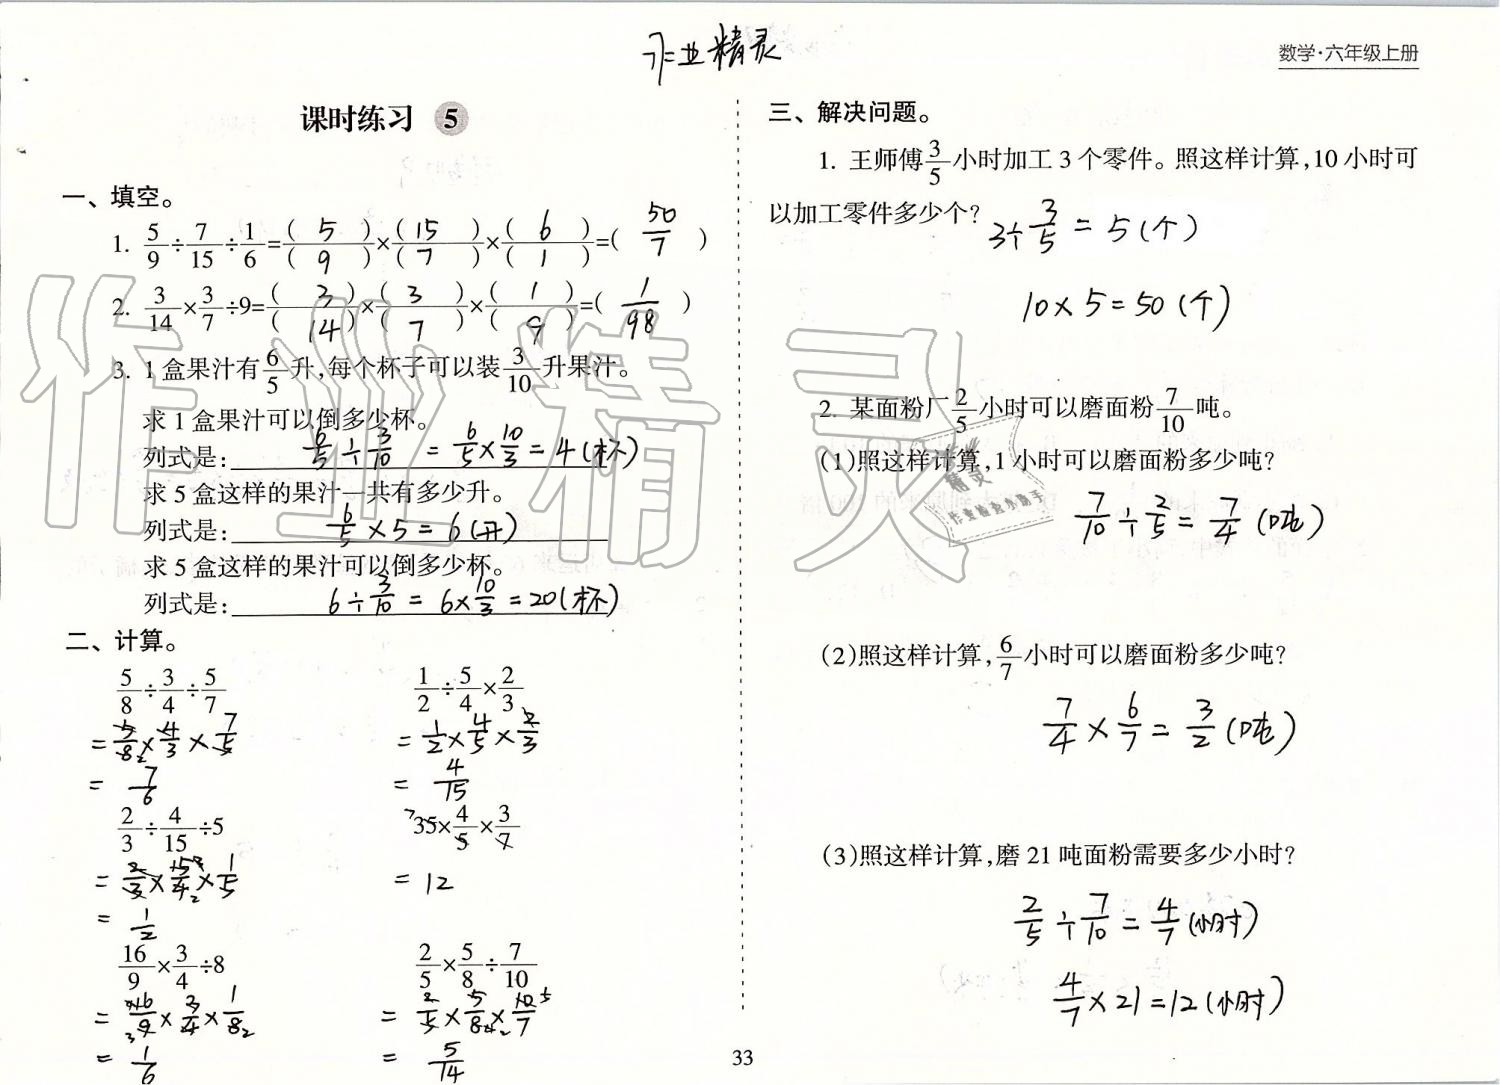 作业精灵
数学·六年级上册
课时练习 5
一、填空。
1. 5/9÷7/15÷1/6=(5)/(9)×(15)/(7)×(6)/(1)=(50/7)
2. 3/14×3/7÷9=(3)/(14)×(3)/(7)×(1)/(9)=(1/98)
3. 1盒果汁有6/5升,每个杯子可以装3/10升果汁。
求1盒果汁可以倒多少杯。
列式是: 6/5÷3/10 = 6/5×10/3 = 4(杯)
求5盒这样的果汁一共有多少升。
列式是: 6/5×5=6(升)
求5盒这样的果汁可以倒多少杯。
列式是: 6÷3/10 = 6×10/3 = 20(杯)
二、计算。
5/8÷3/4÷5/7
=5/8×4/3×7/5
=7/6
1/2÷5/4×2/3
=1/2×4/5×2/3
=4/15
2/3÷4/15÷5
=2/3×15/4×1/5
=1/2
35×4/5×3/7
=12
16/9×3/4÷8
=16/9×3/4×1/8
=1/6
2/5×5/8÷7/10
=2/5×5/8×10/7
=5/14
三、解决问题。
1. 王师傅3/5小时加工3个零件。照这样计算,10小时可
以加工零件多少个?
3÷3/5=5(个)
10×5=50(个)
2. 某面粉厂2/5小时可以磨面粉7/10吨。
(1)照这样计算,1小时可以磨面粉多少吨?
7/10÷2/5=7/4(吨)
(2)照这样计算,6/7小时可以磨面粉多少吨?
7/4×6/7=3/2(吨)
(3)照这样计算,磨21吨面粉需要多少小时?
2/5÷7/10=4/7(小时)
4/7×21=12(小时)
33
作业精灵
精灵
作业检查小助手